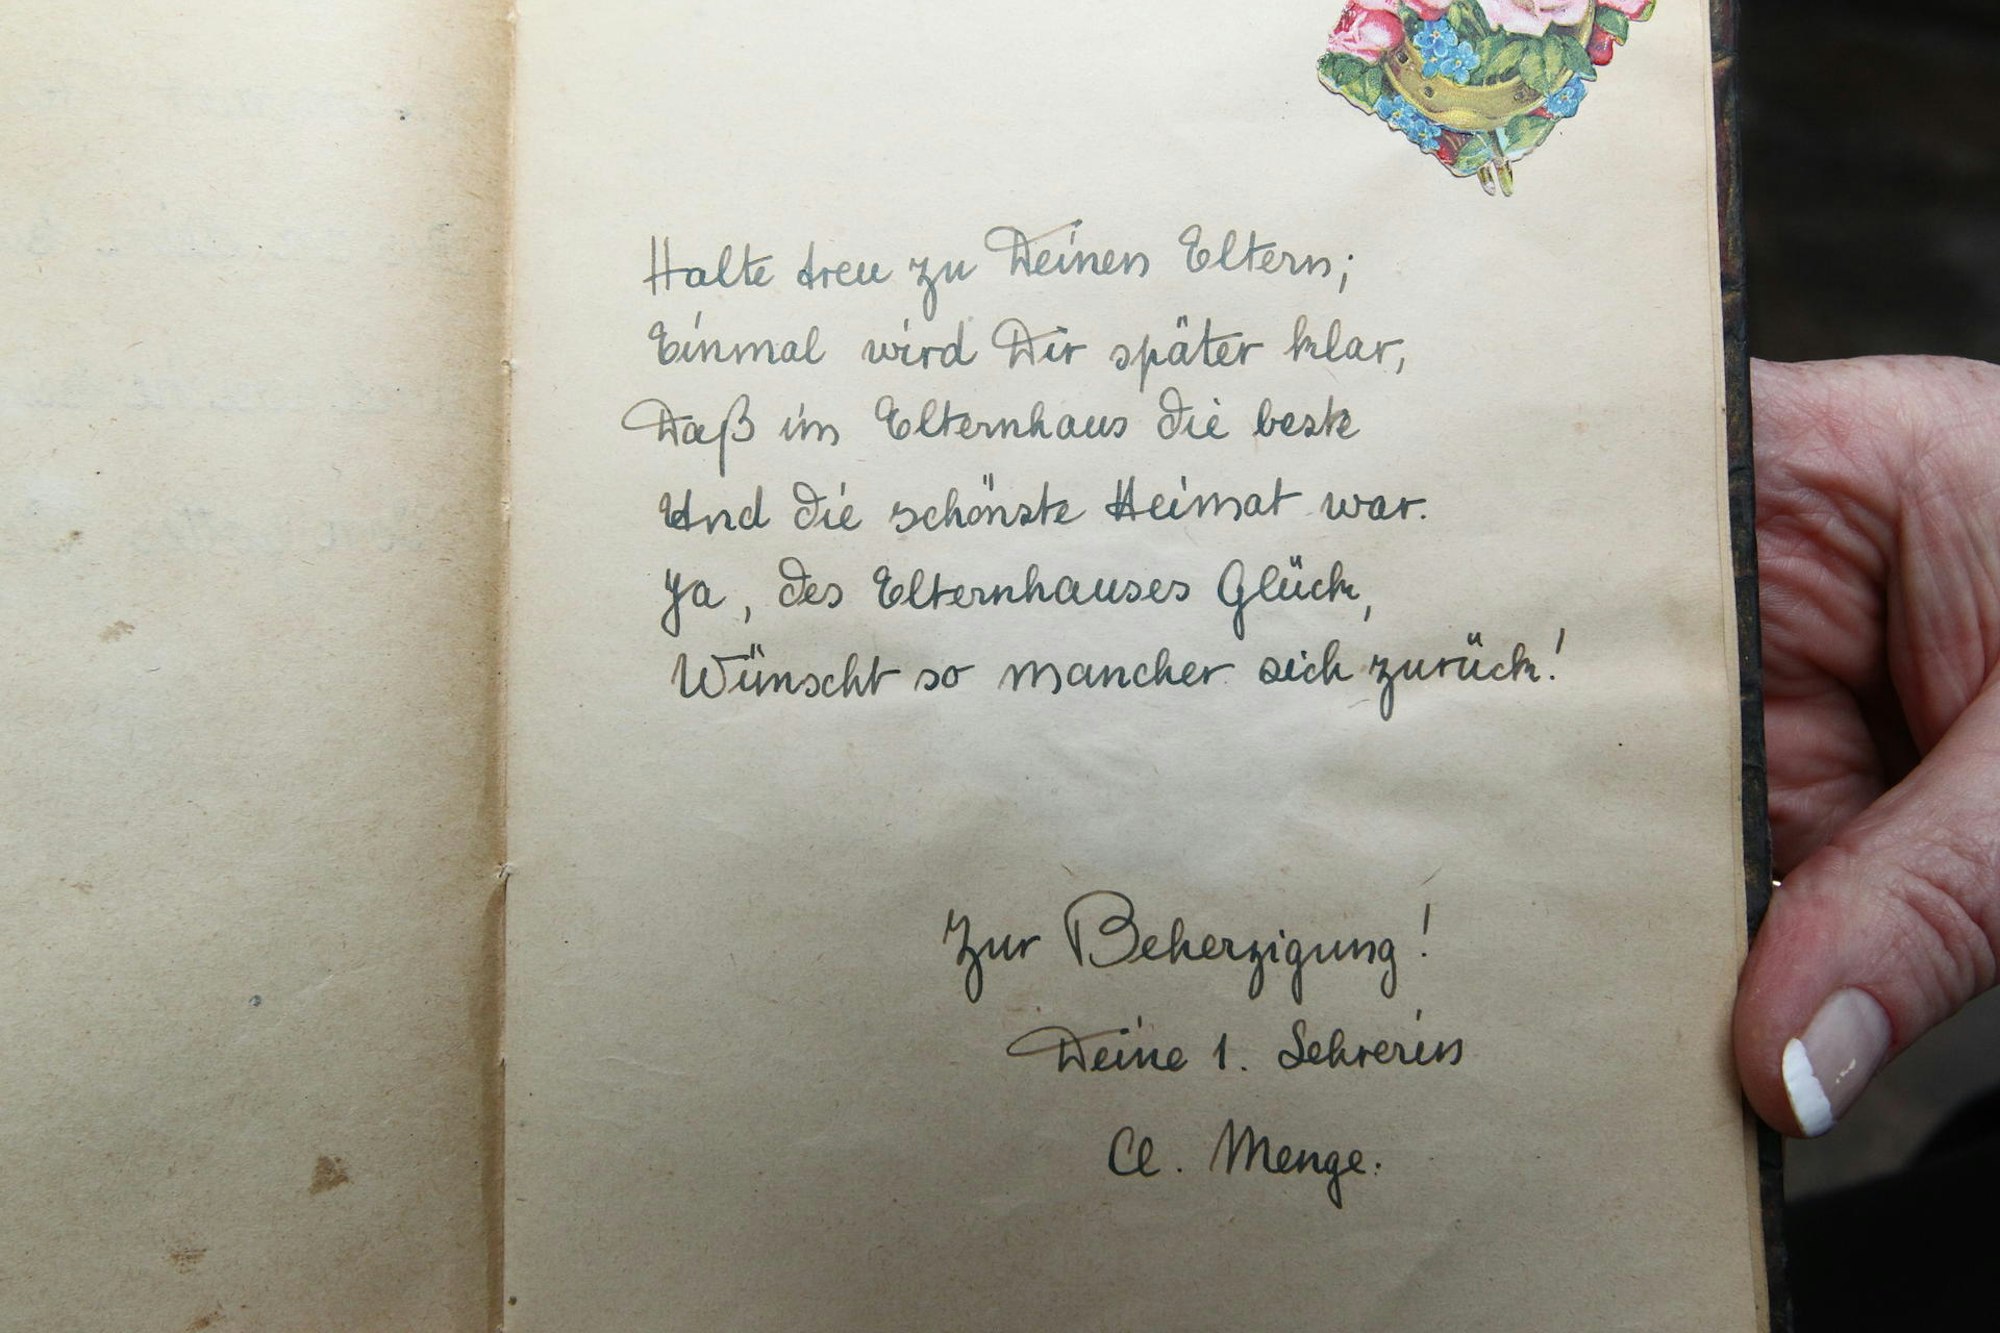 Halte treu zu Deinen Eltern;
Einmal wird Dir später klar,
Daß im Elternhaus die beste
Und die schönste Heimat war.
Ja, des Elternhauses Glück,
Wünscht so mancher sich zurück!
Zur Beherzigung!
Deine 1. Lehrerin
Cl. Menge.